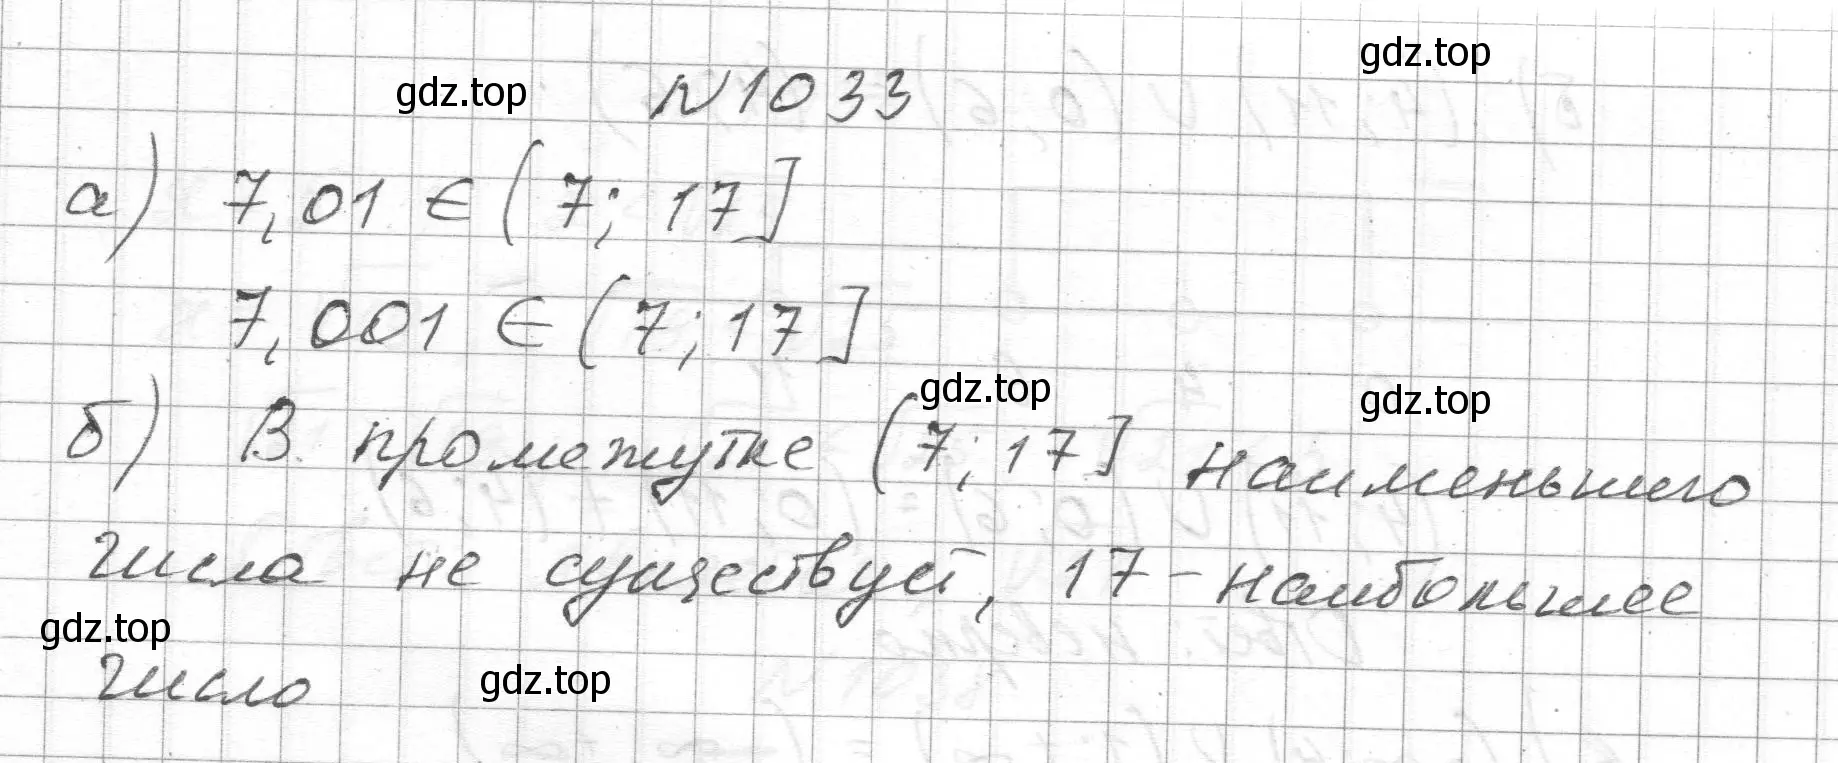 gdz.top
gdz.top
№1033
а) 7,01 ∈ (7; 17]
7,001 ∈ (7; 17]
gdz.top
gdz.top
б) В промежутке (7; 17] наименьшего
числа не существует, 17 - наибольшее
gdz.top
число
gdz.top